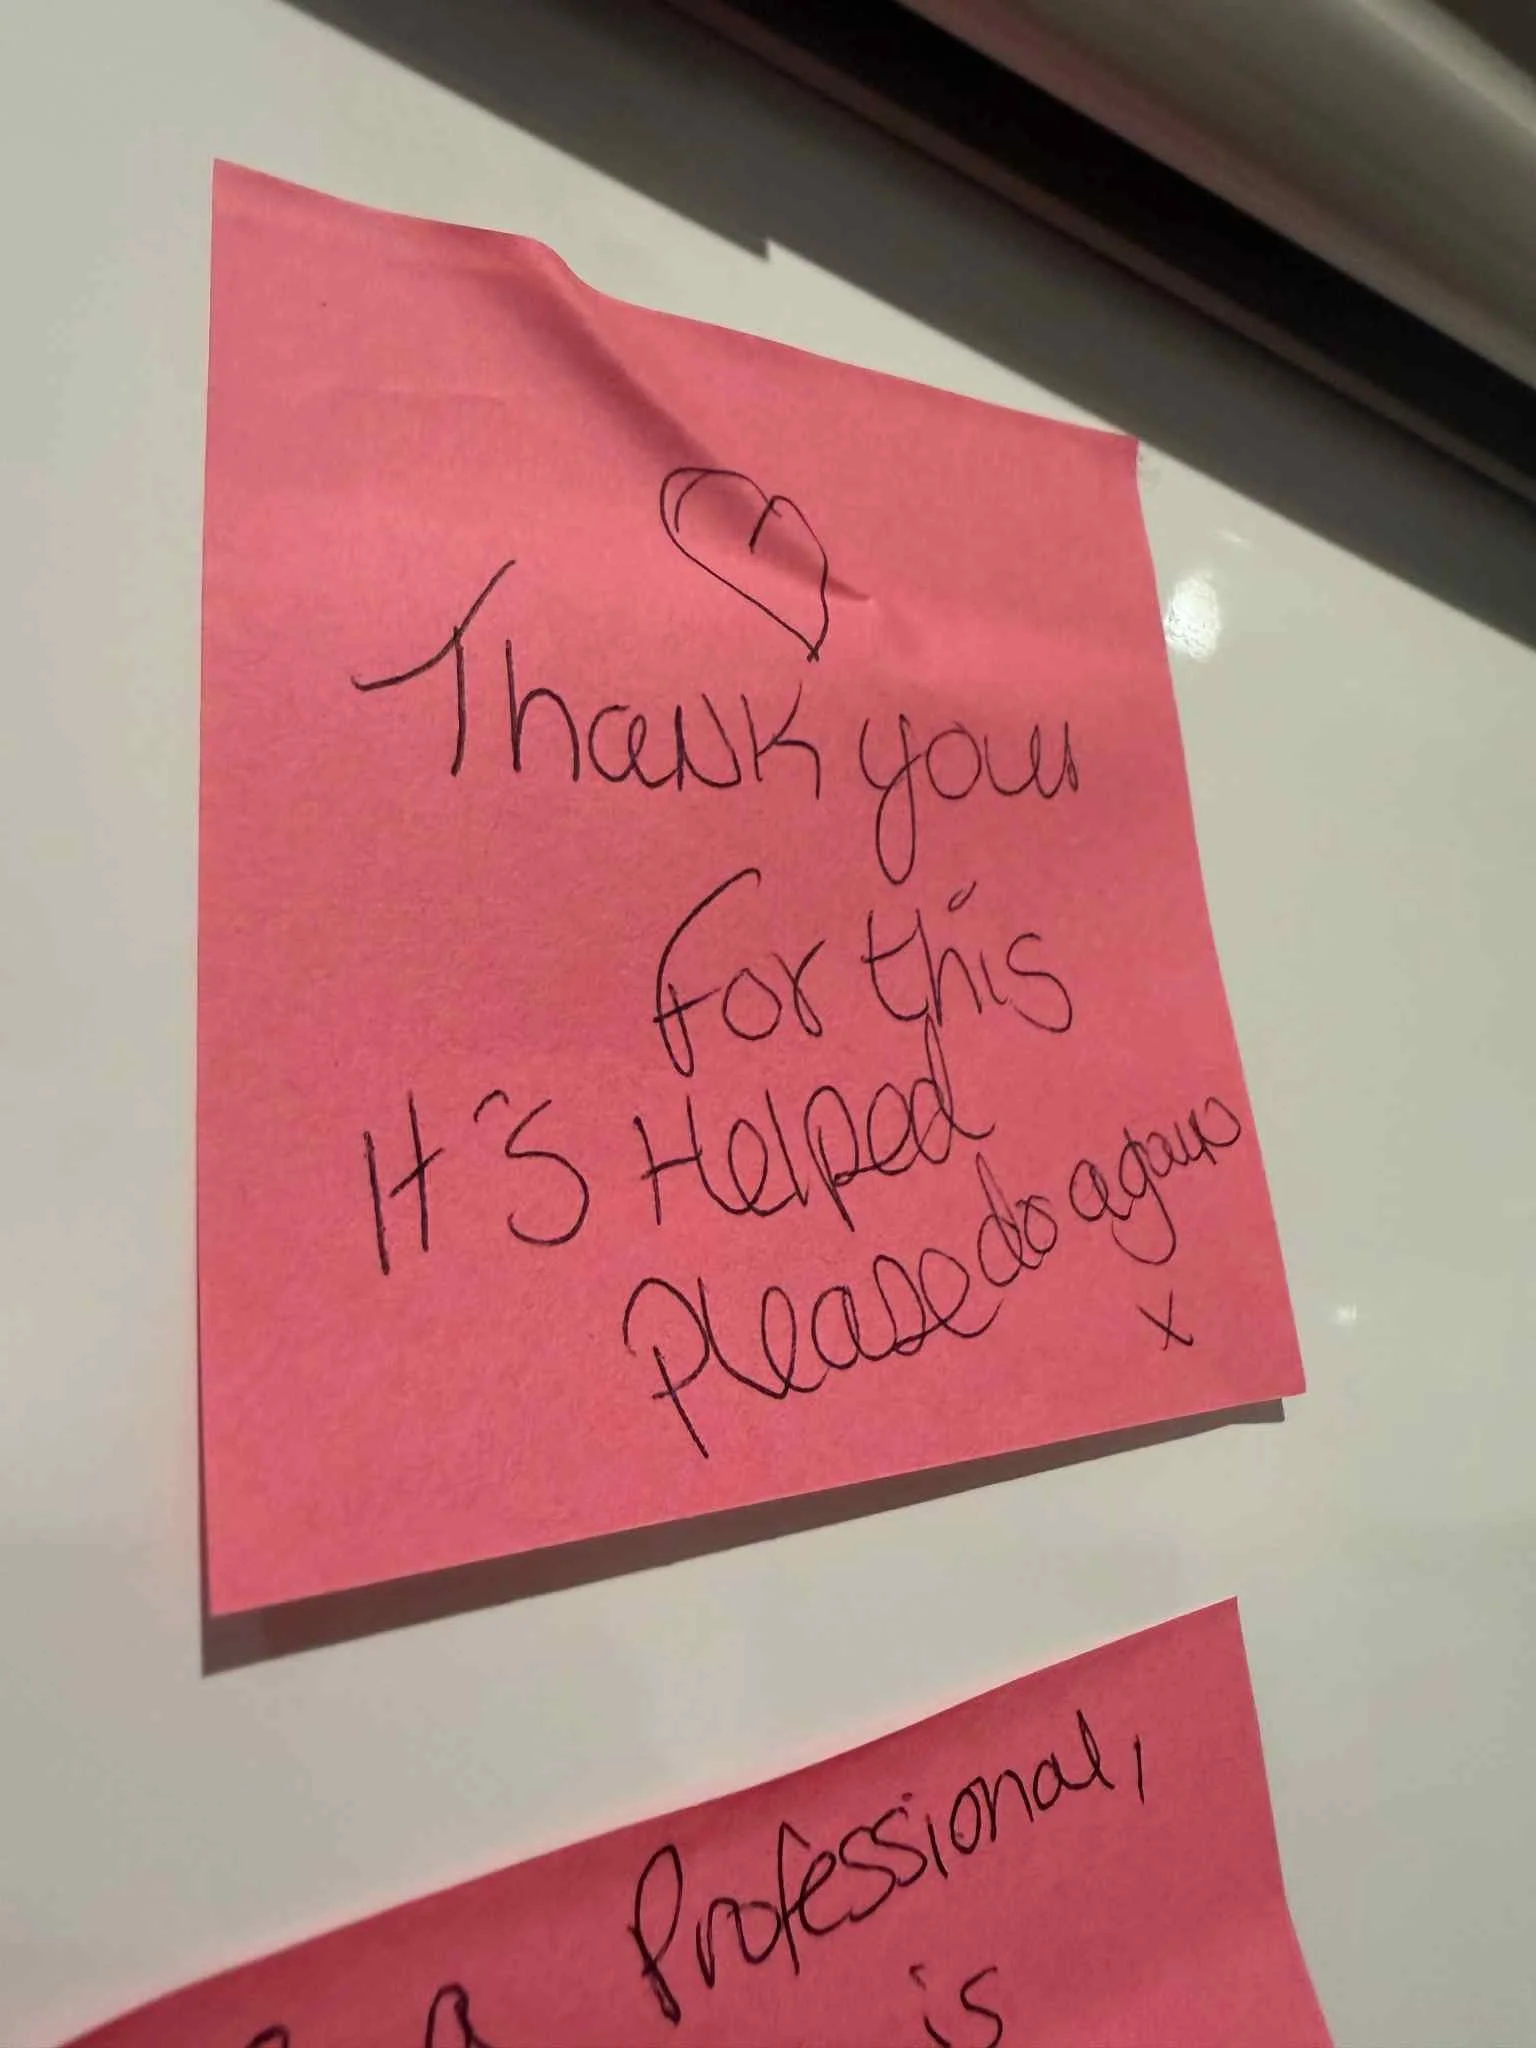 Thank you
For this
It's Helped
Please do again
x
a Professional,
is